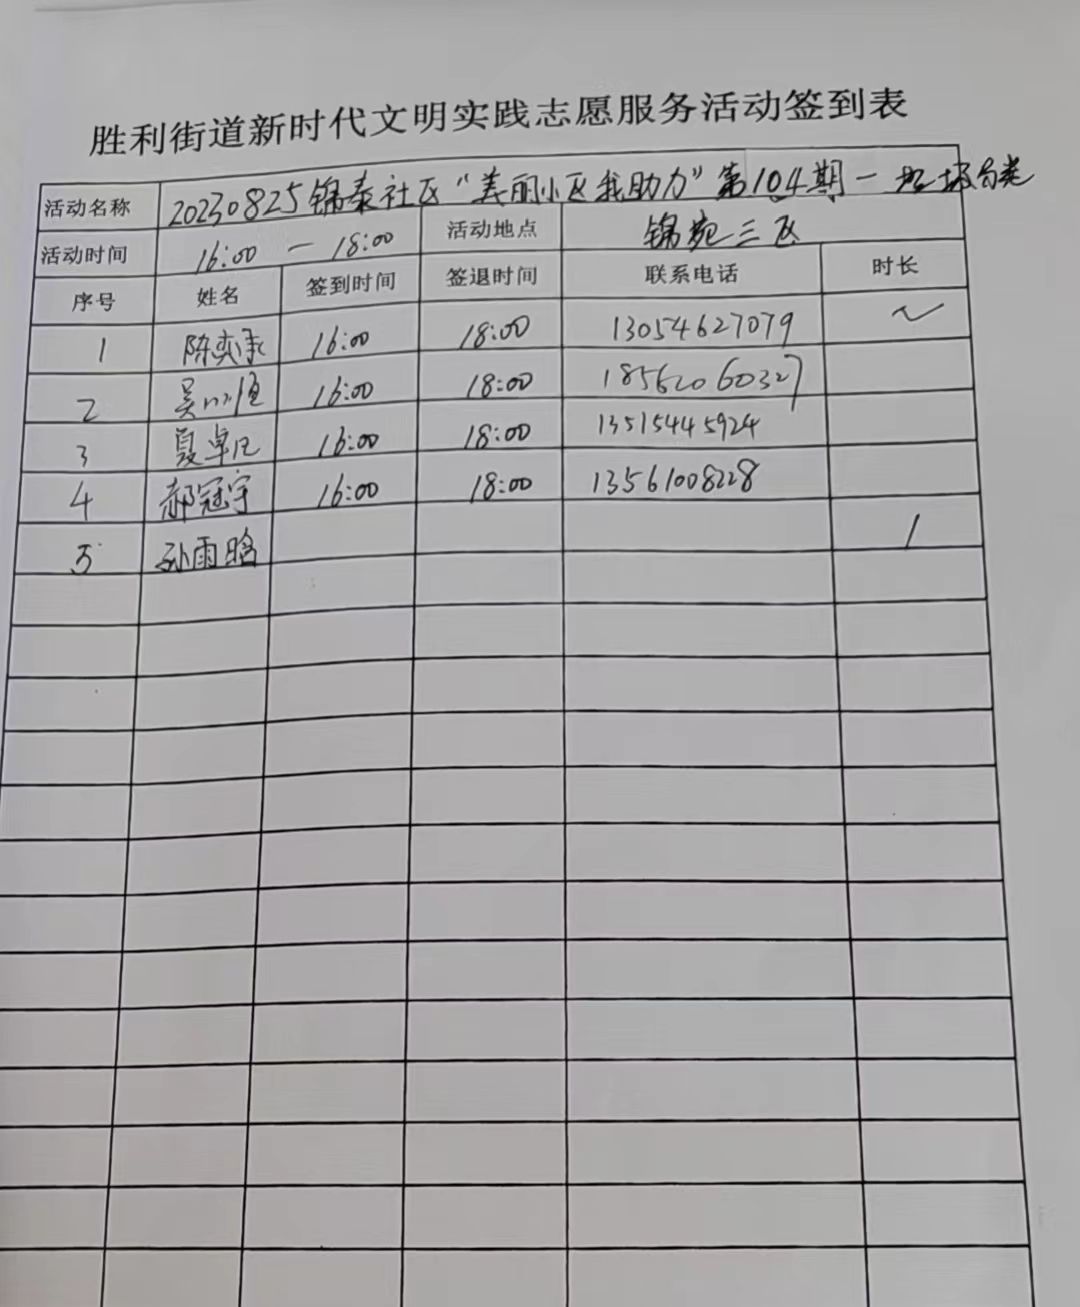 胜利街道新时代文明实践志愿服务活动签到表
活动名称 20230825锦泰社区“美丽小区我助力”第104期一垃圾分类
活动时间 16:00 — 18:00 活动地点 锦苑三区
序号 姓名 签到时间 签退时间 联系电话 时长
1 陈奕 16:00 18:00 13054627079
2 吴 16:00 18:00 18562060327
3 夏卓凡 16:00 18:00 13515445924
4 郝冠宇 16:00 18:00 13561008228
5 孙雨晗 1